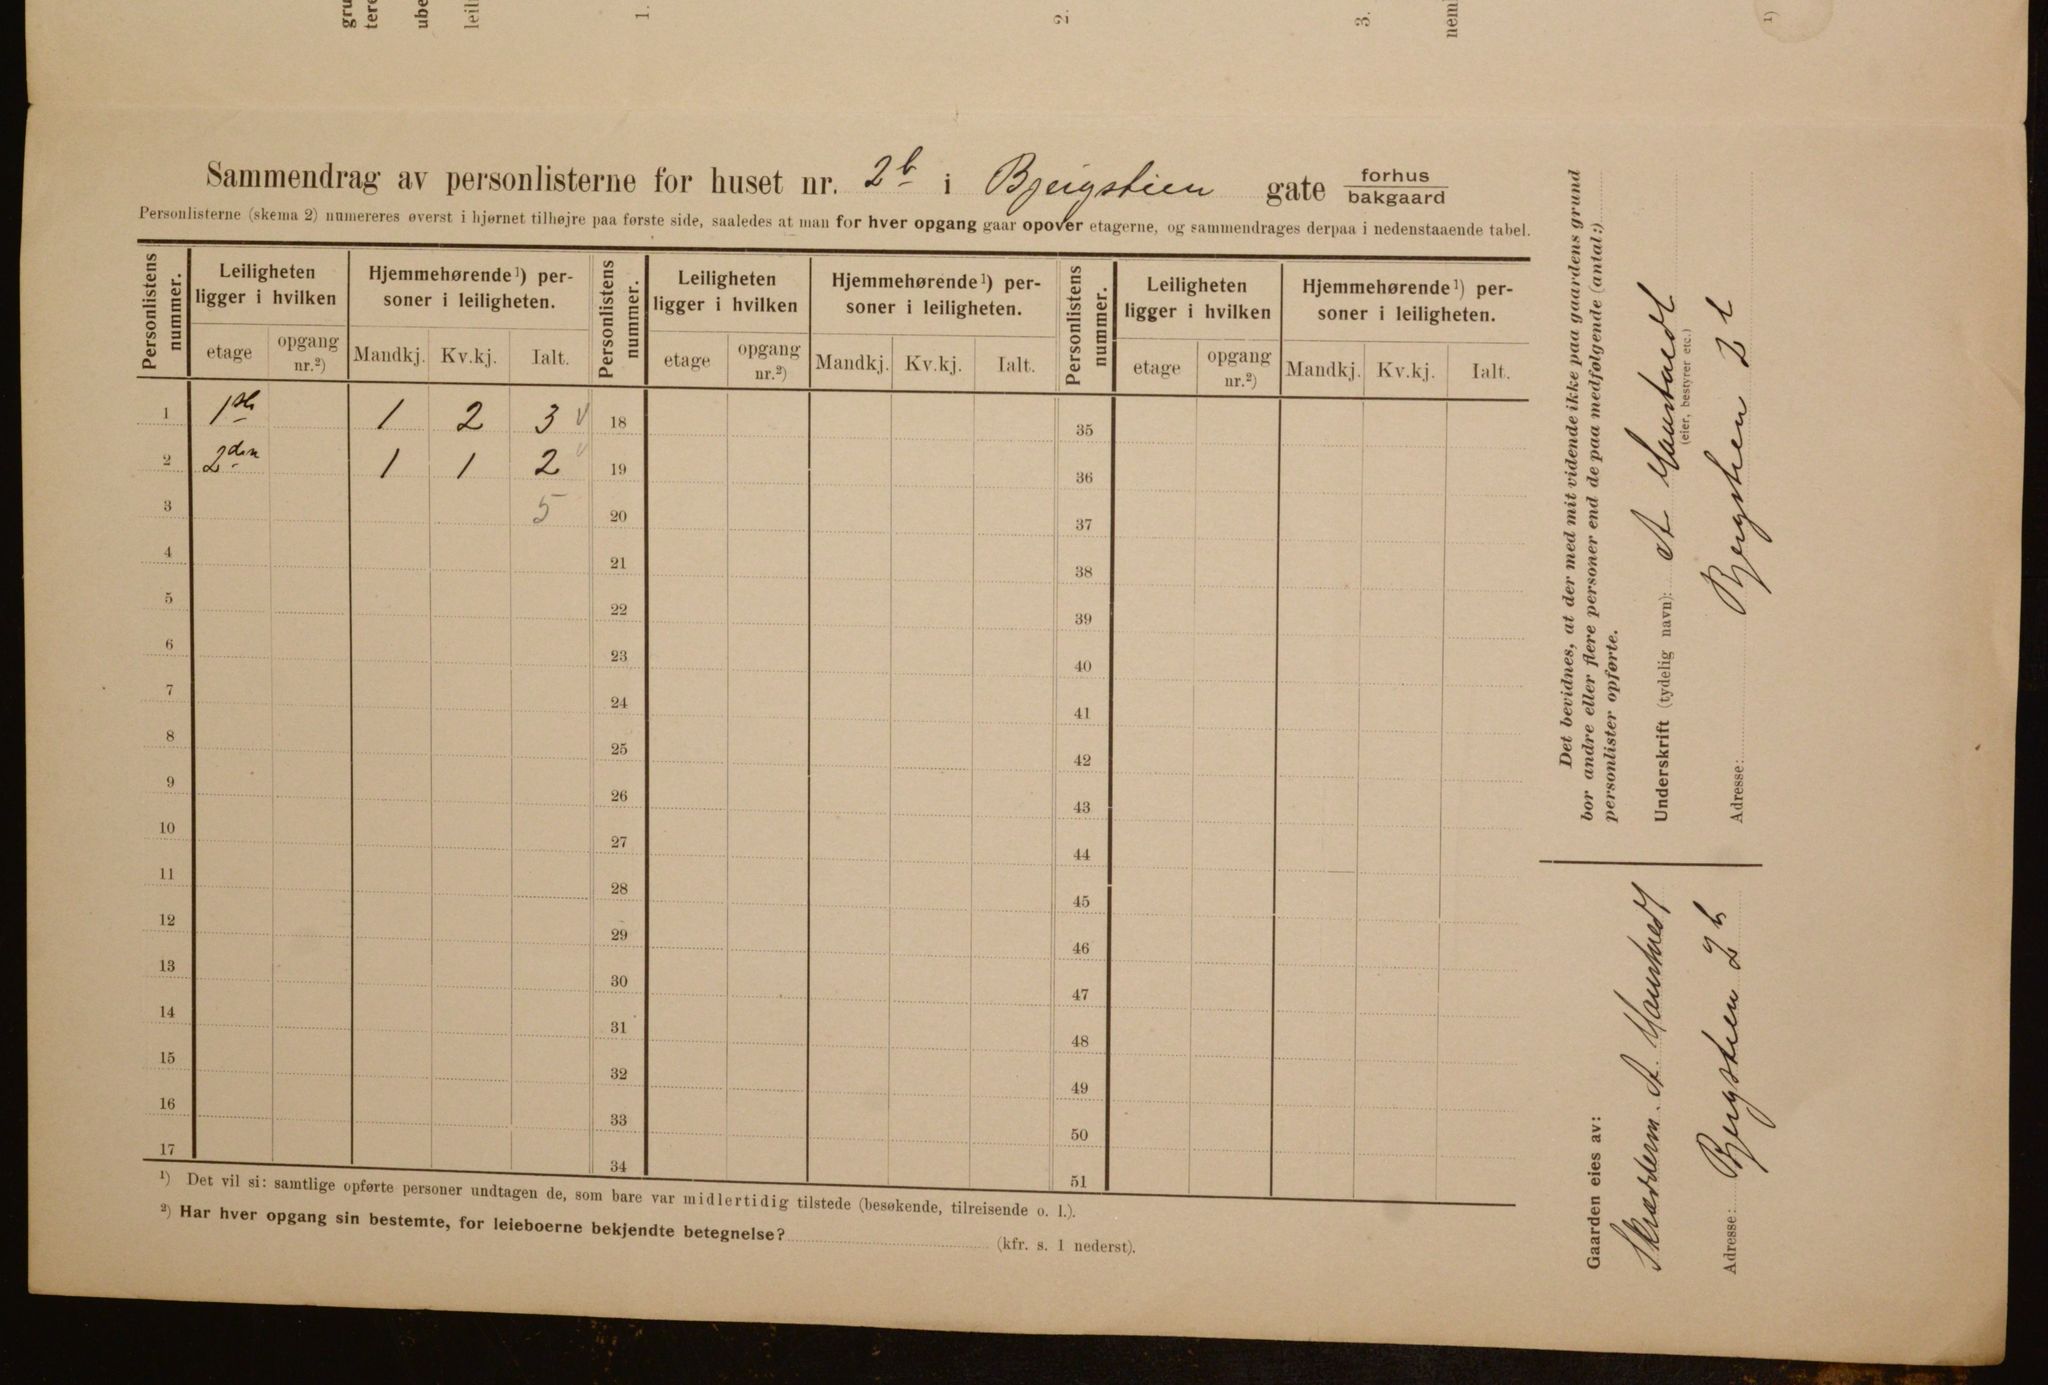 1.
2.
3.
1)
Sammendrag av personlisterne for huset nr. 2b i Bjergstien gate forhus
bakgaard
Personlisterne (skema 2) numereres øverst i hjørnet tilhøjre paa første side, saaledes at man for hver opgang gaar opover etagerne, og sammendrages derpaa i nedenstaaende tabel.
Personlistens nummer. Leiligheten ligger i hvilken Hjemmehørende¹) personer i leiligheten. Personlistens nummer. Leiligheten ligger i hvilken Hjemmehørende¹) personer i leiligheten. Personlistens nummer. Leiligheten ligger i hvilken Hjemmehørende¹) personer i leiligheten.
etage opgang nr.²) Mandkj. Kv.kj. Ialt. etage opgang nr.²) Mandkj. Kv.kj. Ialt. etage opgang nr.²) Mandkj. Kv.kj. Ialt.
1 1ste 1 2 3 18 35
2 2den 1 1 2 19 36
3 5 20 37
4 21 38
5 22 39
6 23 40
7 24 41
8 25 42
9 26 43
10 27 44
11 28 45
12 29 46
13 30 47
14 31 48
15 32 49
16 33 50
17 34 51
¹) Det vil si: samtlige opførte personer undtagen de, som bare var midlertidig tilstede (besøkende, tilreisende o. l.).
²) Har hver opgang sin bestemte, for leieboerne bekjendte betegnelse? (kfr. s. 1 nederst).
Det bevidnes, at der med mit vidende ikke paa gaardens grund
bor andre eller flere personer end de paa medfølgende (antal:)
personlister opførte.
Underskrift (tydelig navn): A
(eier, bestyrer etc.)
Adresse: Bjergstien 2 b
Gaarden eies av:
Skræderm. A.
Adresse: Bjergstien 2b